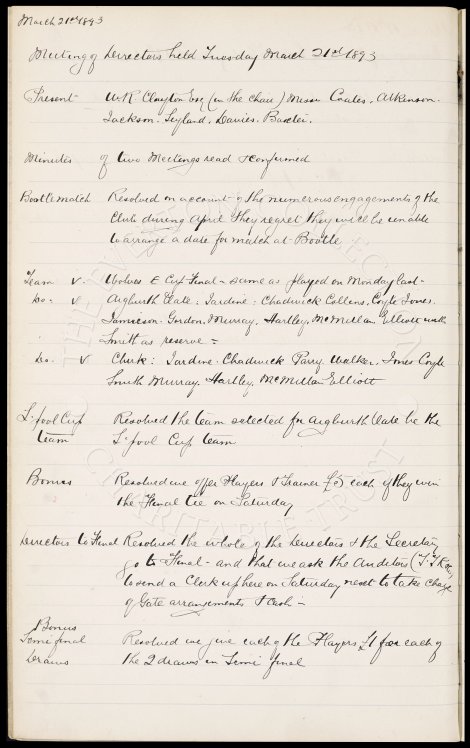 March 21st 1893
Meeting of Directors held Tuesday March 21st 1893
Present W.R. Clayton Esq (in the chair) Messrs Coates. Atkinson.
Jackson. Leyland. Davies. Baxter.
Minutes of two Meetings read & confirmed
Bootle match Resolved on account of the numerous engagements of the
Club during April they regret they will be unable
to arrange a date for match at Bootle
Team v Wolves E Cup Final - same as played on Monday last -
Do. v Aigburth Vale: Jardine: Chadwick Collins, Coyle Jones.
Jamieson. Gordon. Murray. Hartley. McMillan. Elliott with
Smith as reserve =
Do. v Chirk: Jardine. Chadwick Parry. Walker. Jones Coyle
Smith Murray. Hartley. McMillan Elliott
L'pool Cup Resolved the team selected for Aigburth Vale be the
team L'pool Cup team
Bonus Resolved we offer Players & Trainer £3 each if they win
the Final tie on Saturday
Directors to Final Resolved the whole of the Directors & the Secretary
go to Final - and that we ask the Auditors
to send a Clerk up here on Saturday next to take charge
of Gate arrangements & Cash -
Bonus
Semi final Resolved we give each of the Players £1 for each of
Draws the 2 draws in Semi final
THE EVERTON COLLECTION
CHARITABLE TRUST